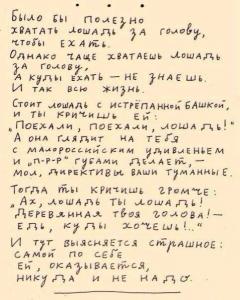 Было бы полезно
хватать лошадь за голову,
чтобы ехать.
Однако чаще хватаешь лошадь
за голову,
а куды ехать – не знаешь.
И так всю жизнь.
Стоит лошадь с истрёпанной башкой,
и ты кричишь ей:
"Поехали, поехали, лошадь!"
А она глядит на тебя
с малороссийским удивленьем
и "п-р-р" губами делает, –
мол, директивы ваши туманные.
Тогда ты кричишь громче:
"Ах, лошадь ты лошадь!
Деревянная твоя голова! –
Едь, куды хочешь!.."
И тут выясняется страшное:
самой по себе
ей, оказывается,
никуда и не надо.